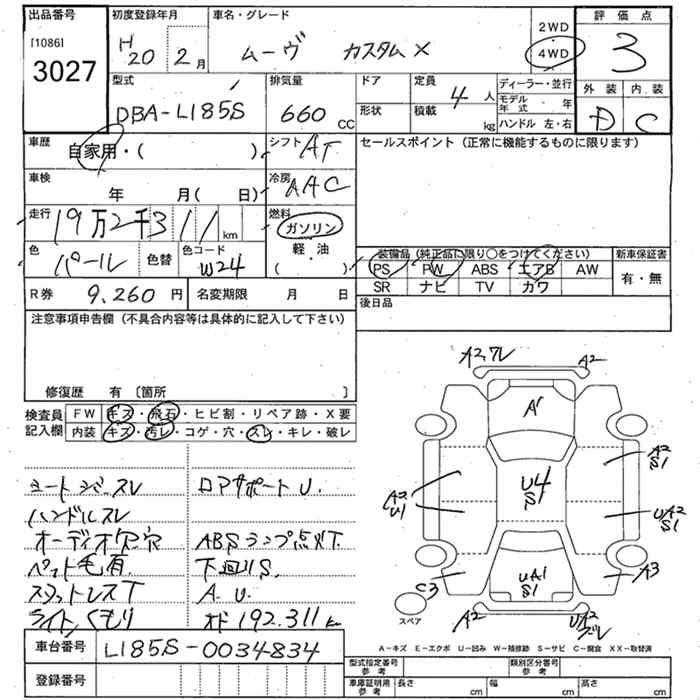 出品番号 初度登録年月 車名・グレード 評価点
[1086]
3027
H20 2月
ムーヴ カスタムX
2WD
4WD
3
型式 排気量 ドア 定員 ディーラー・並行 外装 内装
DBA-L185S 660 CC 4人
形状 積載 kg
モデル年式 年
ハンドル 左・右
D C
車歴 自家用・( ) シフト AT
セールスポイント（正常に機能するものに限ります）
車検 年 月( 日) 冷房 AAC
走行 19万2千311 km 燃料 ガソリン 軽・油 ( )
色 パール 色替 色コード W24
装備品（純正品に限り○をつけてください） 新車保証書
PS PW ABS エアB AW 有・無
SR ナビ TV カワ
R券 9,260円 名変期限 月 日 後日品
注意事項申告欄（不具合内容等は具体的に記入して下さい）
修復歴 有 〔箇所 〕
検査員記入欄
FW キズ・飛石・ヒビ割・リペア跡・X要
内装 キズ・汚レ・コゲ・穴・スレ・キレ・破レ
シートシワ・スレ ロアサポートU.
ハンドルスレ
オーディオ欠.穴 ABSランプ点灯.
ペット毛有 下回りS.
スタットレスT A.U.
ライトくもり オド192.311km
車台番号 L185S-0034834
登録番号
A2,ワレ
A2
A1
A2
S1
A2
U1
U4
S
UA2
S1
C3
UA1
S1
A3
スペア
A2
UA2
A－キズ E－エクボ U－凹み W－補修跡 S－サビ C－腐食 XX－取替済
型式指定番号 参考 類別区分番号 参考
車庫証明用 参考 長さ cm 幅 cm 高さ cm